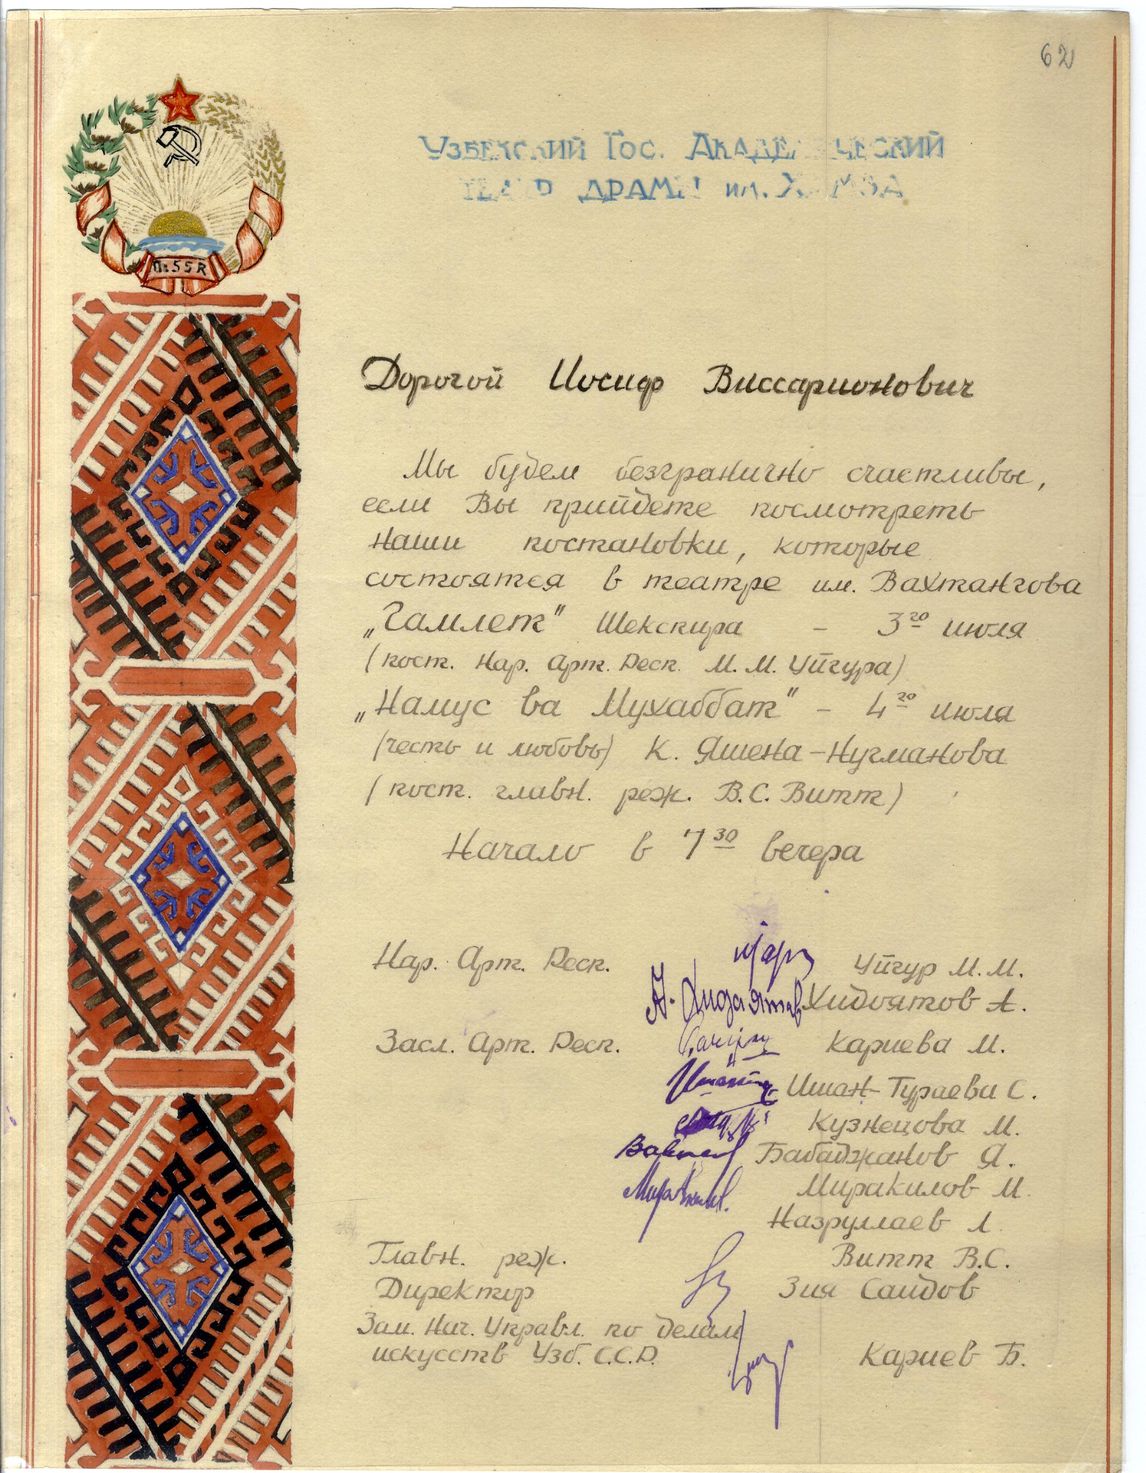 62
Узбекский Гос. Академический
Театр Драмы им. Хамза
UzSSR
Дорогой Иосиф Виссарионович
Мы будем безгранично счастливы,
если Вы прийдете посмотреть
наши постановки, которые
состоятся в театре им. Вахтангова
„Гамлет" Шекспира – 3го июля
(пост. Нар. Арт. Респ. М. М. Уйгура)
„Намус ва Мухаббат" – 4го июля
(честь и любовь) К. Яшена-Нугманова
(пост. главн. реж. В.С. Витт)
Начало в 7 30 вечера
Нар. Арт. Респ. Уйгур М.М.
А. Хидаятов Хидоятов А.
Засл. Арт. Респ. Кариева М.
Ишан-Тураева С.
Кузнецова М.
Бабаджанов Я.
Миракилов М.
Назруллаев Л.
Главн. реж. Витт В.С.
Директор Зия Саидов
Зам. Нач. Управл. по делам
искусств Узб. С.С.Р. Кариев Б.